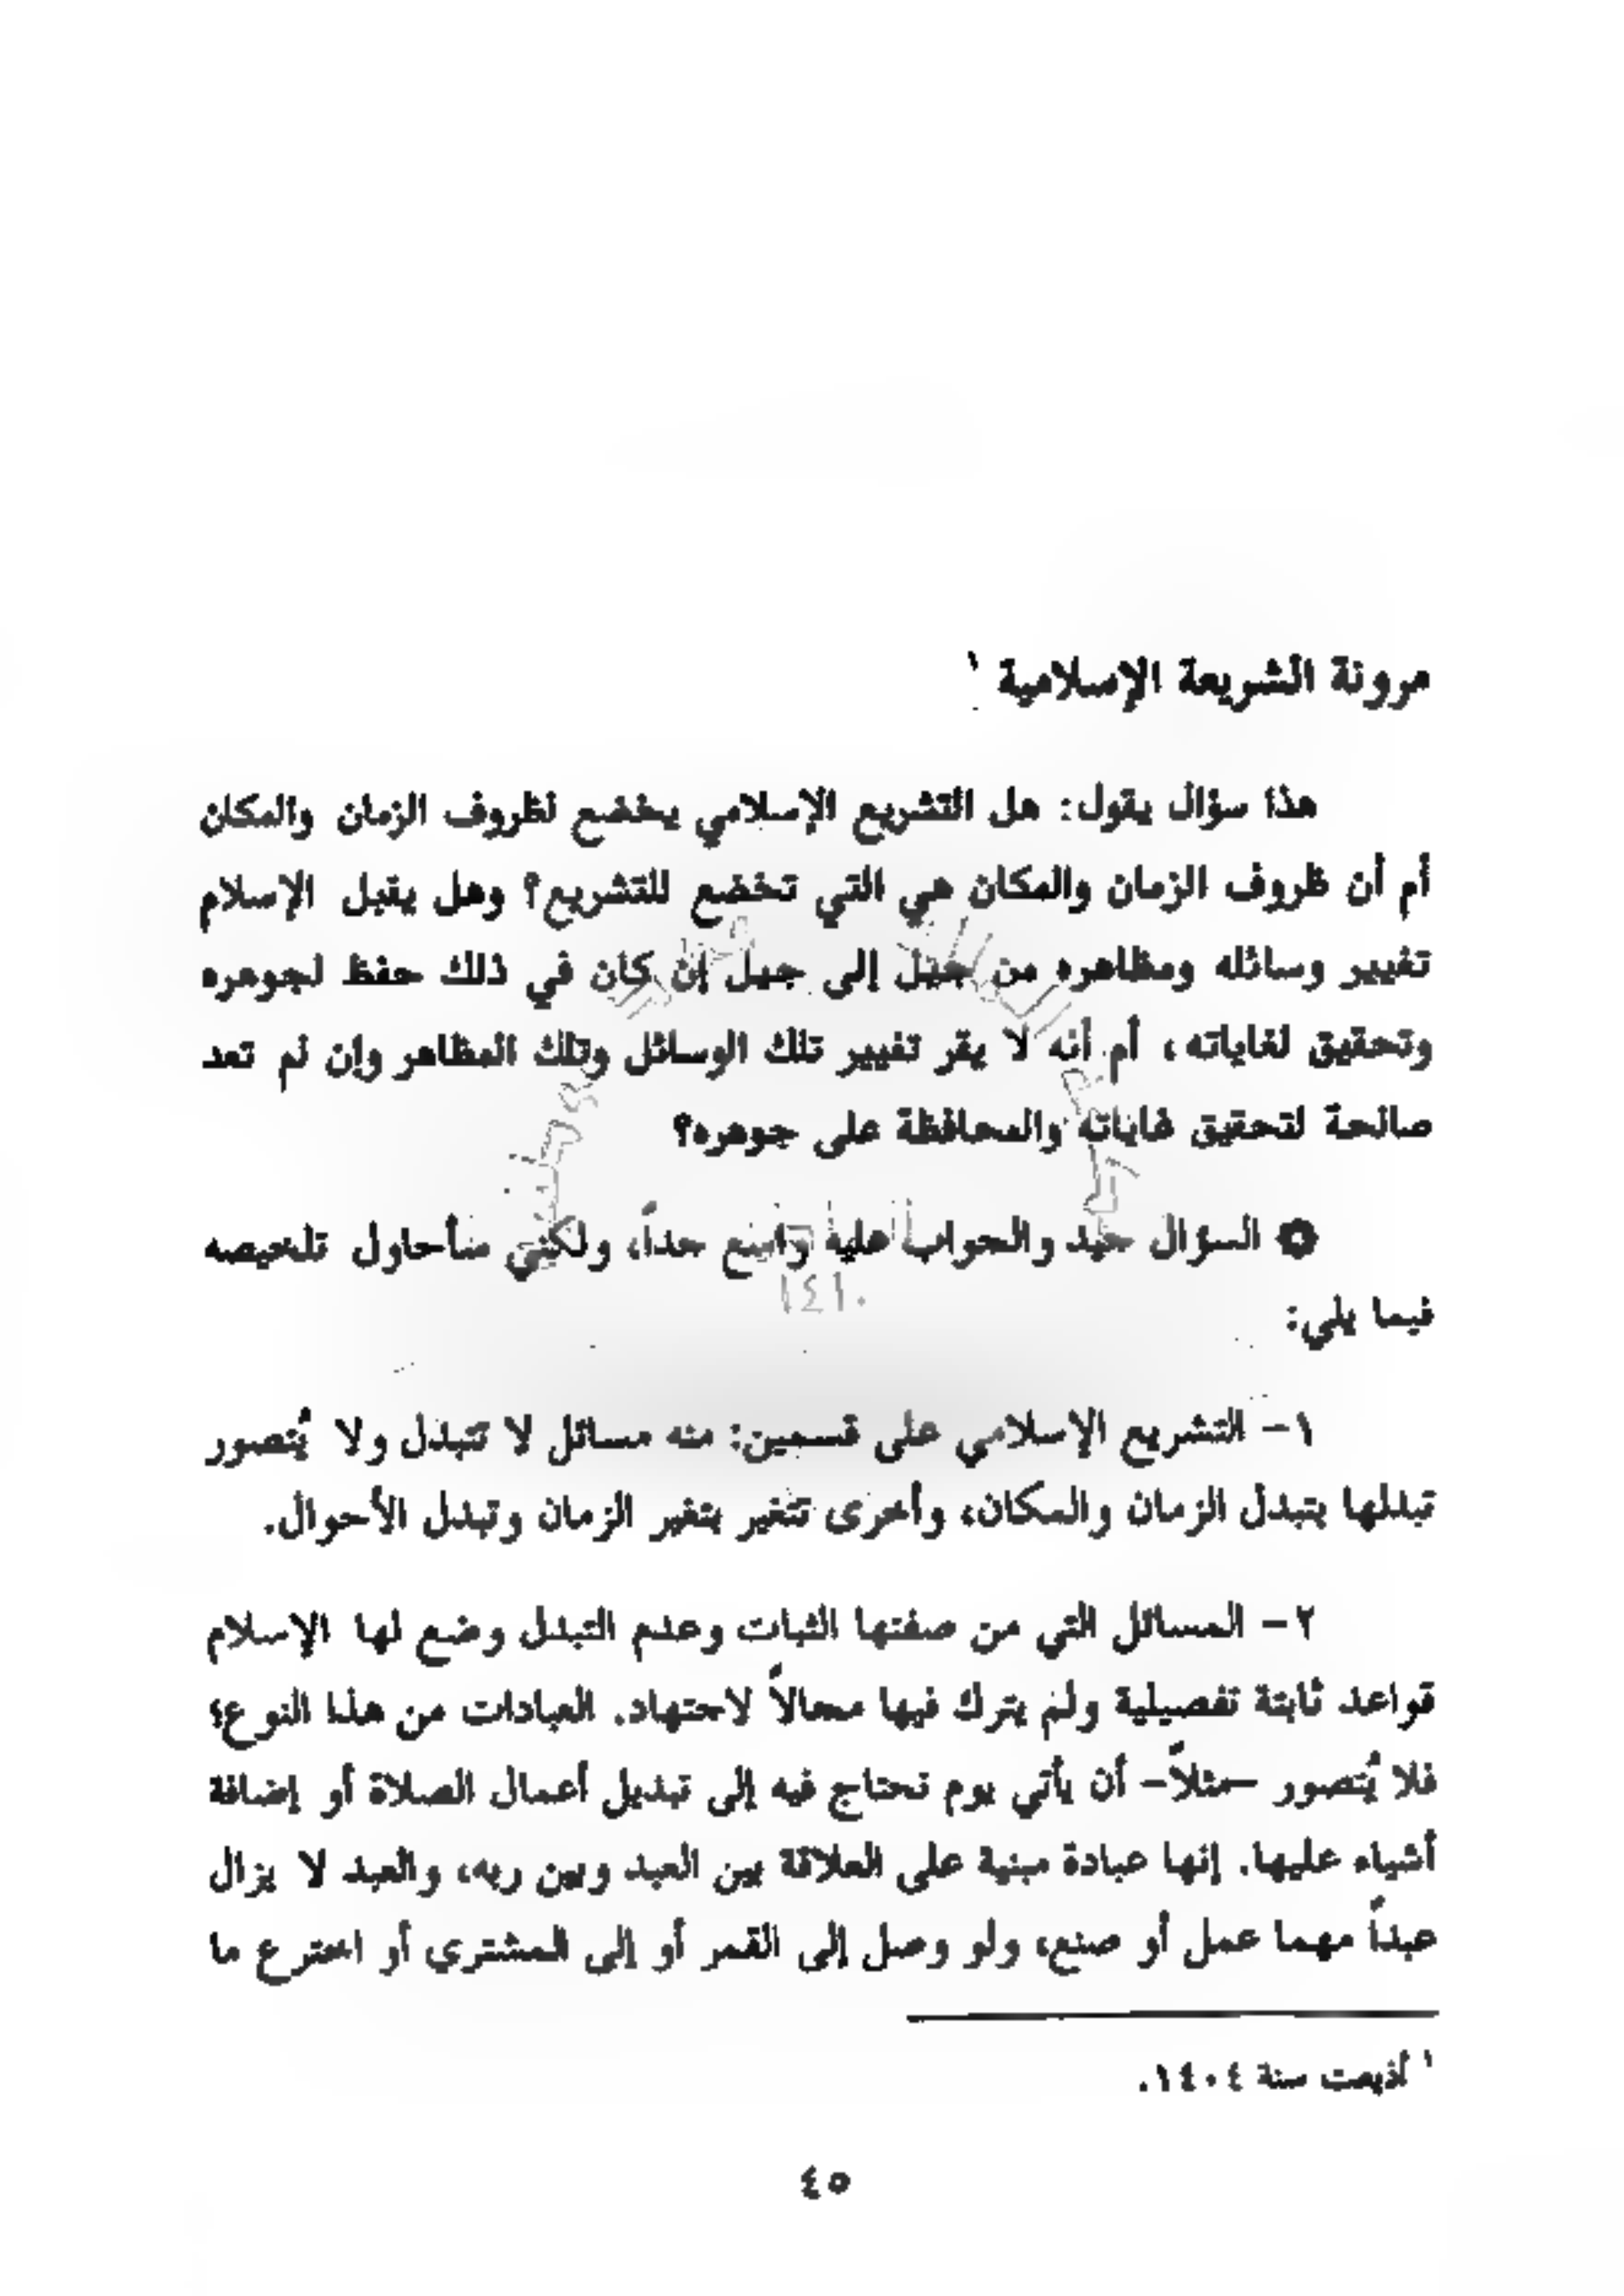 مرونة الشريعة الإسلامية ١
هذا سؤال يقول: هل التشريع الإسلامي يخضع لظروف الزمان والمكان
أم أن ظروف الزمان والمكان هي التي تخضع للتشريع؟ وهل يقبل الإسلام
تغيير وسائله ومظاهره من جيل إلى جيل إن كان في ذلك حفظ لجوهره
وتحقيق لغاياته، أم أنه لا يقر تغيير تلك الوسائل وتلك المظاهر وإن لم تعد
صالحة لتحقيق غاياته والمحافظة على جوهره؟
۞ السؤال جيد والجواب عليه واسع جداً، ولكني سأحاول تلخيصه
فيما يلي:
١- التشريع الإسلامي على قسمين: منه مسائل لا تتبدل ولا يُتصور
تبدلها بتبدل الزمان والمكان، وأخرى تتغير بتغير الزمان وتبدل الأحوال.
٢- المسائل التي من صفتها الثبات وعدم التبدل وضع لها الإسلام
قواعد ثابتة تفصيلية ولم يترك فيها مجالاً لاجتهاد. العبادات من هذا النوع؛
فلا يُتصور -مثلاً- أن يأتي يوم تحتاج فيه إلى تبديل أعمال الصلاة أو إضافة
أشياء عليها. إنها عبادة مبنية على العلاقة بين العبد وبين ربه، والعبد لا يزال
عبداً مهما عمل أو صنع، ولو وصل إلى القمر أو إلى المشتري أو اخترع ما
١ أذيعت سنة ١٤٠٤.
٤٥